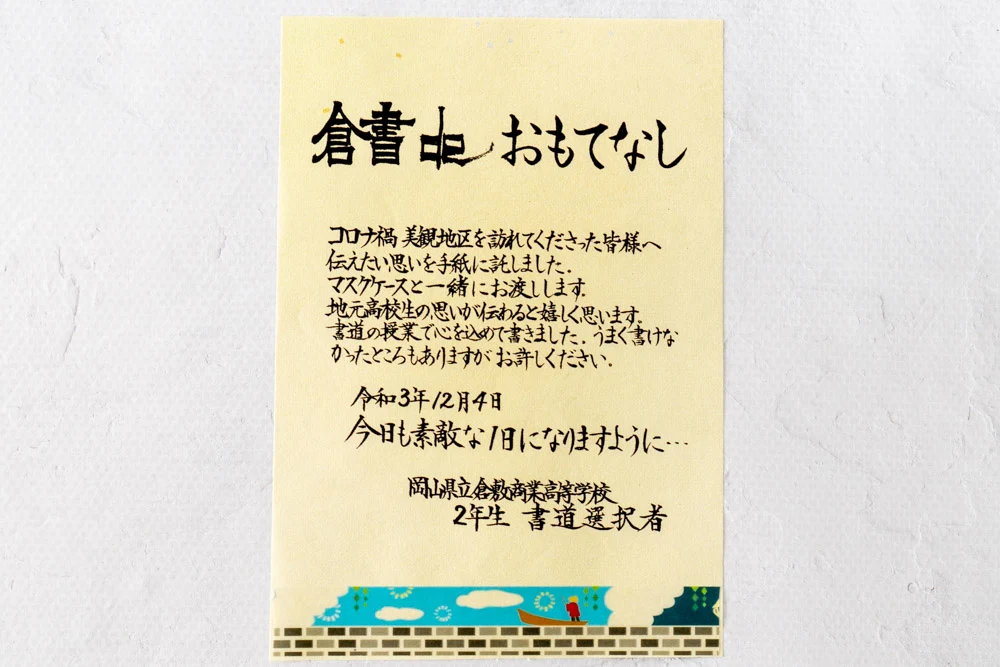 倉書 おもてなし
コロナ禍 美観地区を訪れてくださった皆様へ
伝えたい思いを手紙に託しました.
マスクケースと一緒にお渡しします.
地元高校生の思いが伝わると嬉しく思います.
書道の授業で心を込めて書きました.うまく書けな
かったところもありますがお許しください.
令和3年12月4日
今日も素敵な1日になりますように…
岡山県立倉敷商業高等学校
2年生 書道選択者